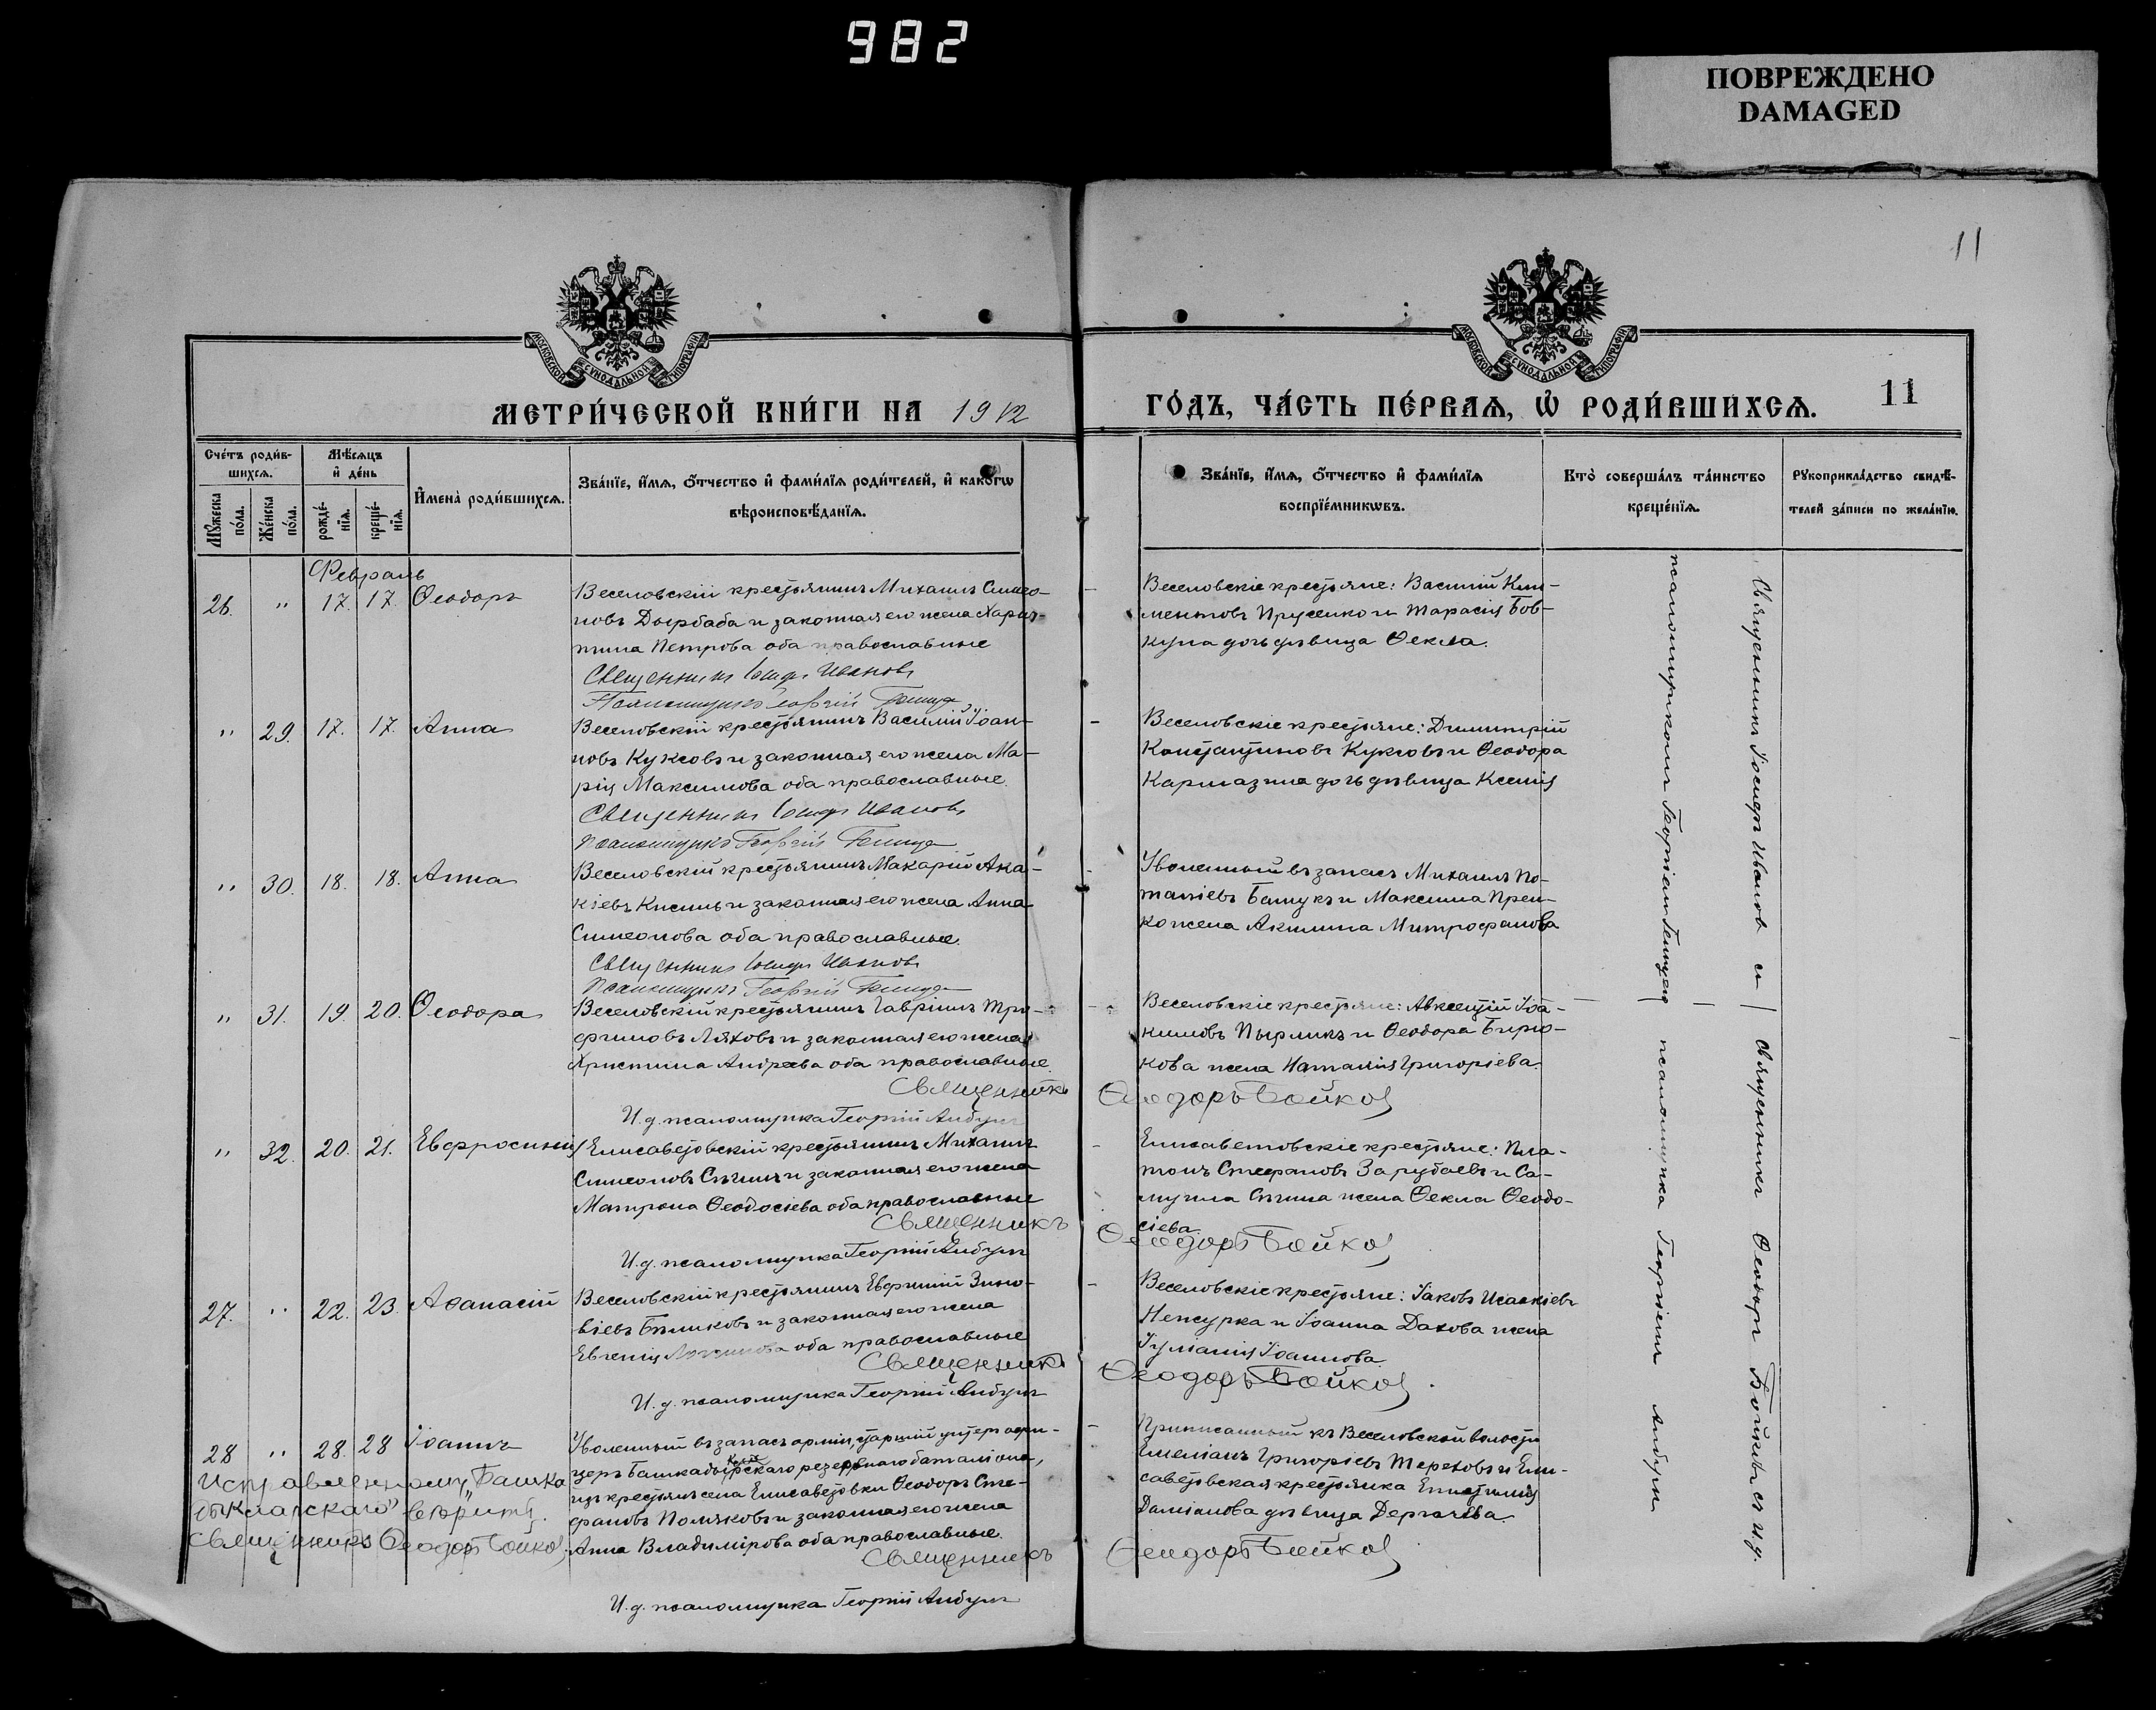 982
ПОВРЕЖДЕНО
DAMAGED
11
МОСКОВСКОЙ СѴНОДАЛЬНОЙ ТИПОГРАФІИ
МОСКОВСКОЙ СѴНОДАЛЬНОЙ ТИПОГРАФІИ
МЕТРИ́ЧЕСКОЙ КНИ́ГИ НА 1912
ГО́ДЪ, ЧА́СТЬ ПЕ́РВАЯ, Ѡ҆ РОДИ́ВШИХСЯ. 11
Сче́тъ роди́в-
шихся.
Мꙋжеска по́ла.
Же́нска по́ла.
Мѣ́сяцъ
и҆ де́нь
рожде́-
нїя.
креще́-
нїя.
И҆мена̀ роди́вшихся.
Зва́нїе, и҆́мя, ѻ҆́тчество и҆ фами́лїя роди́телей, и҆ како́гѡ
вѣроисповѣ́данїя.
Зва́нїе, и҆́мя, ѻ҆́тчество и҆ фами́лїя
воспрїе́мникѡвъ.
Кто̀ соверша́лъ та́инство
креще́нїя.
Рꙋкоприкла́дство свидѣ́-
телей за́писи по жела́нїю.
Февраль
26. " 17. 17. Ѳеодоръ
Веселовскій крестьянинъ Михаилъ Симео-
новъ Дырбаба и законная его жена Хари-
тина Петрова оба православные
Священникъ Іосифъ Ивановъ
Псаломщикъ Георгій
Веселовскіе крестьяне: Василій Кли-
ментовъ Прусенко и Тарасія Бов-
куна дочь дѣвица Ѳекла.
" 29. 17. 17. Анна
Веселовскій крестьянинъ Василій Іоан-
новъ Куксовъ и законная его жена Ма-
рія Максимова оба православные.
Священникъ Іосифъ Ивановъ
Псаломщикъ Георгій
Веселовскіе крестьяне: Димитрій
Константиновъ Куксовъ и Ѳеодора
Кармазина дочь дѣвица Ксенія
" 30. 18. 18. Анна
Веселовскій крестьянинъ Макарій Ака-
кіевъ Кисиль и законная его жена Анна
Симеонова оба православные.
Священникъ Іосифъ Ивановъ
Псаломщикъ Георгій
Уволенный въ запасъ Михаилъ По-
тапіевъ Башукъ и Максима Прей-
ко жена Акилина Митрофанова
" 31. 19. 20. Ѳеодора
Веселовскій крестьянинъ Гавріилъ Тро-
фимовъ Ляховъ и законная его жена
Христина Андреева оба православные.
Священникъ Ѳеодоръ Бойковъ
И.д. псаломщика Георгій Анбулъ
Веселовскіе крестьяне: Авксентій Іоа-
кимовъ Пырликъ и Ѳеодора Бирю-
кова жена Наталія Григоріева.
" 32. 20. 21. Евфросинія
Елисаветовскій крестьянинъ Михаилъ
Симеоновъ и законная его жена
Матрона Ѳеодосіева оба православные
Священникъ Ѳеодоръ Бойковъ
И.д. псаломщика Георгій Анбулъ
Елисаветовскіе крестьяне: Пла-
тонъ Стефановъ Зарубаевъ и Са-
муила жена Ѳекла Ѳеодо-
сіева.
27. " 22. 23. Аѳанасій
Веселовскій крестьянинъ Евфимій Зино-
віевъ Бѣликовъ и законная его жена
Евгенія оба православные
Священникъ Ѳеодоръ Бойковъ
И.д. псаломщика Георгій Анбулъ
Веселовскіе крестьяне: Іаковъ Исаакіевъ
Нежурка и Іоанна Дахова жена
Іуліанія Іоаннова.
28 " 28. 28 Іоаннъ
Уволенный въ запасъ арміи, старшій унтеръ офи-
церъ Башкадыкскаго резервнаго баталіона,
изъ крестьянъ села Елисаветовки Ѳеодоръ Сте-
фановъ Поляковъ и законная его жена
Анна Владимірова оба православные.
Священникъ Ѳеодоръ Бойковъ
И.д. псаломщика Георгій Анбулъ
Приписанный къ Веселовской волости
Емеліанъ Григоріевъ Тереховъ и Ели-
саветовская крестьянка Епистимія
Даміанова дѣвица Дергачева.
Исправленному „Башка-
дыкларскаго" вѣрить.
Священникъ Ѳеодоръ Бойковъ
Священникъ Іосифъ Ивановъ и
псаломщикомъ Георгіемъ
Священникъ Ѳеодоръ Бойковъ съ и.д.
псаломщика Георгіемъ Анбулъ